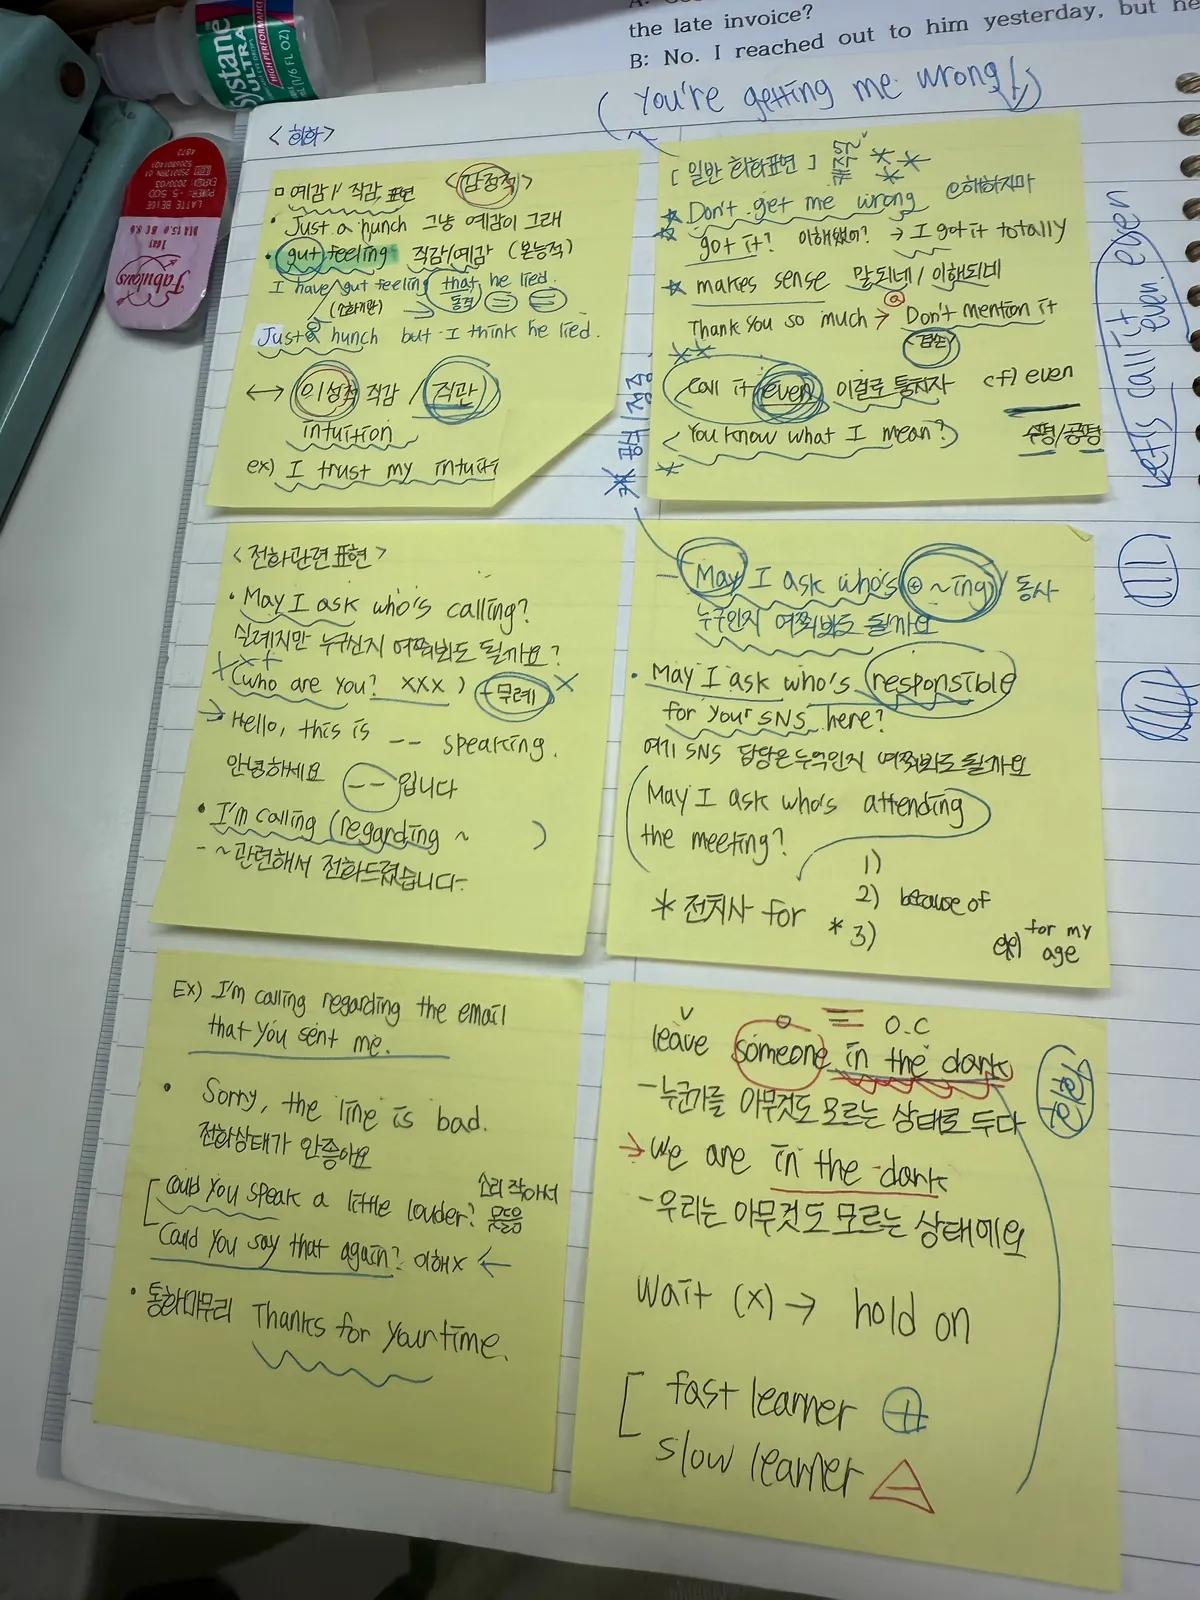 the late invoice?
B: No. I reached out to him yesterday, but he
Systane
ULTRA
HIGH PERFORMANCE
LATTE BEIGE
Fabulous
(You're getting me wrong!)
<회화>
ㅁ 예감 / 직감 표현 <감정적>
• Just a hunch 그냥 예감이 그래
• gut feeling 직감/예감 (본능적)
I have gut feeling that he lied.
동격
Just a hunch but I think he lied.
↔ 이성적 직감 / 직관
intuition
ex) I trust my intuiti
[일반 회화표현]
Don't get me wrong 오해하지마
got it? 이해했어? → I got it totally
makes sense 말되네 / 이해되네
Thank you so much → Don't mention it
<겸손>
Call it even 이걸로 퉁치자 cf) even
수평/공평
<You know what I mean?>
Let's call it even
even
<전화관련 표현>
• May I ask who's calling?
실례지만 누구신지 여쭤봐도 될까요?
(who are you? xxx) 무례
→ Hello, this is -- speaking.
안녕하세요 -- 입니다
• I'm calling (regarding ~ )
- ~관련해서 전화드렸습니다-
- May I ask who's ⊕ ~ing / 동사
누구인지 여쭤봐도 될까요
• May I ask who's responsible
for your SNS here?
여기 SNS 담당은 누구인지 여쭤봐도 될까요
May I ask who's attending
the meeting?
1)
* 전치사 for 2) because of
* 3)
ex) for my age
Ex) I'm calling regarding the email
that you sent me.
• Sorry, the line is bad.
전화상태가 안좋아요
Could you speak a little louder? 소리 작아서 못들음
Could you say that again? 이해x ←
• 통화마무리 Thanks for your time.
O O.C
leave someone in the dark
- 누군가를 아무것도 모르는 상태로 두다
→ we are in the dark
- 우리는 아무것도 모르는 상태에요
wait (x) → hold on
fast learner ⊕
slow learner